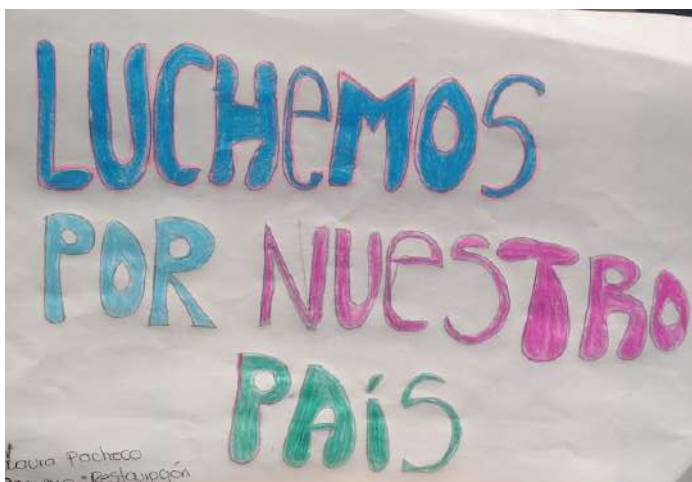 LUCHEMOS
POR NUESTRO
PAÍS
Laura Pacheco
Restauración